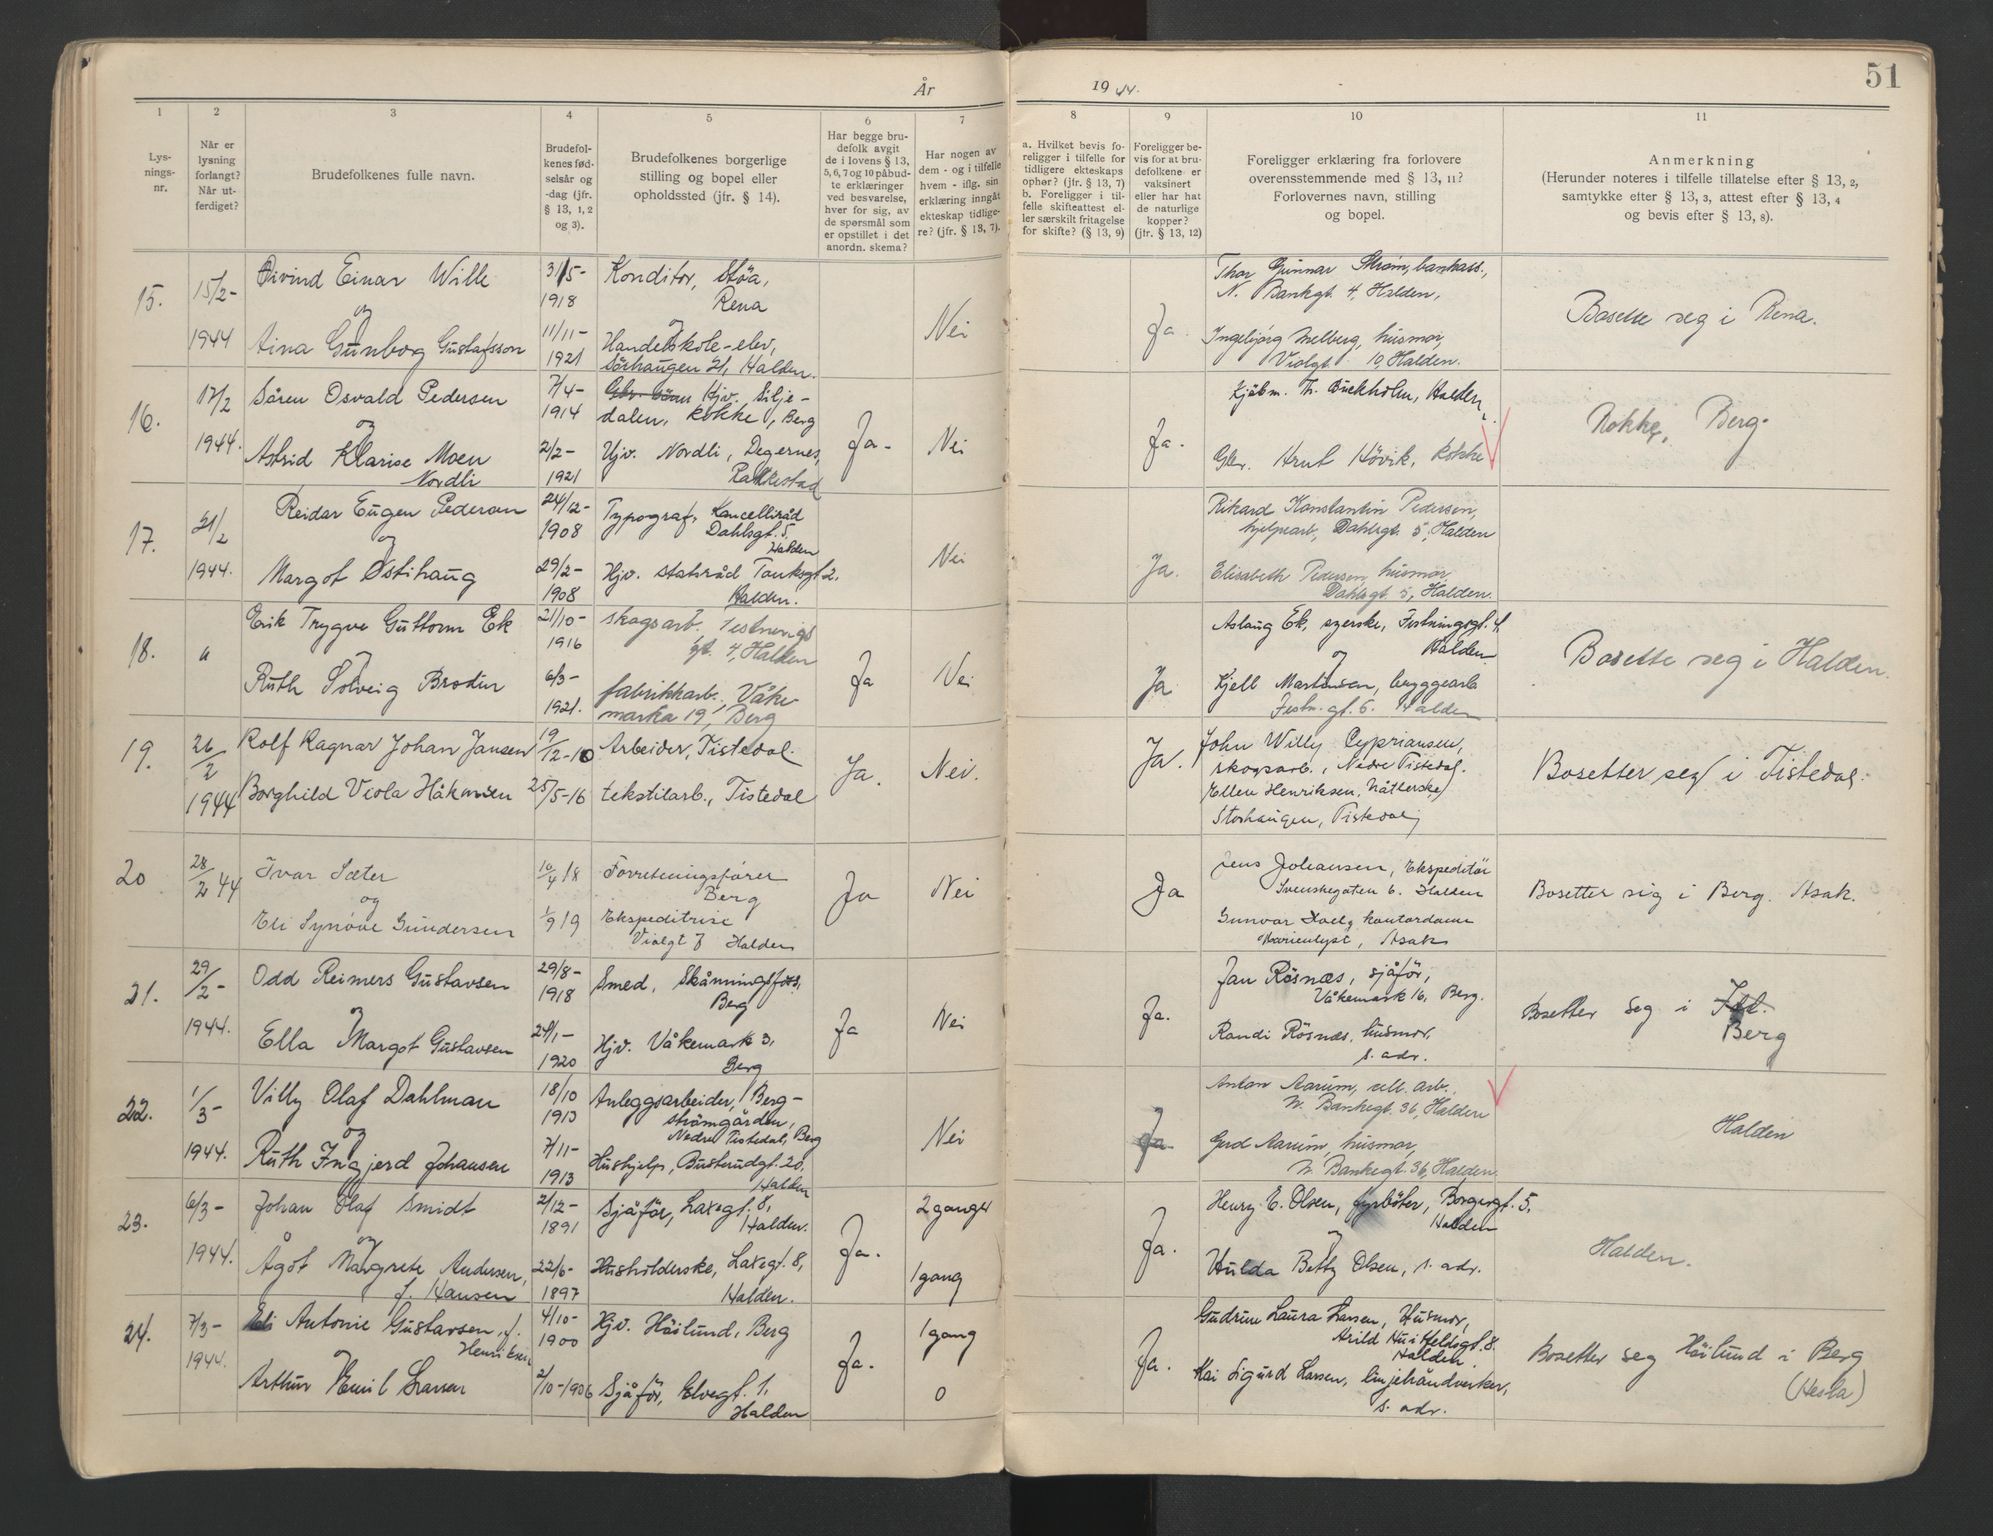 År 1944.
51
1
2
3
4
5
6
7
8
9
10
11
Lys-
nings-
nr.
Når er
lysning
forlangt?
Når ut-
ferdiget?
Brudefolkenes fulle navn.
Brudefol-
kenes fød-
selsår og
-dag (jfr.
§ 13, 1, 2
og 3).
Brudefolkenes borgerlige
stilling og bopel eller
opholdssted (jfr. § 14).
Har begge bru-
defolk avgit
de i lovens § 13,
5, 6, 7 og 10 påbud-
te erklæringer
ved besvarelse,
hver for sig, av
de spørsmål som
er opstillet i det
anordn. skema?
Har nogen av
dem - og i tilfelle
hvem - iflg. sin
erklæring inngåt
ekteskap tidlige-
re? (jfr. § 13, 7).
a. Hvilket bevis fo-
religger i tilfelle for
tidligere ekteskaps
ophør? (jfr. § 13, 7)
b. Foreligger i til-
felle skifteattest el-
ler særskilt fritagelse
for skifte? (§ 13, 9)
Foreligger be-
vis for at bru-
defolkene er
vaksinert
eller har hat
de naturlige
kopper?
(jfr. § 13, 12)
Foreligger erklæring fra forlovere
overensstemmende med § 13, 11?
Forlovernes navn, stilling
og bopel.
Anmerkning
(Herunder noteres i tilfelle tillatelse efter § 13, 2,
samtykke efter § 13, 3, attest efter § 13, 4
og bevis efter § 13, 8).
15.
15/2-
1944
Øivind Einar Wille
og
Aina Gunbog Gustafsson
31/5-
1918
11/11-
1921
Konditor, Støa,
Rena
og
Handelskole-elev,
Sörhaugen 21, Halden.
Nei
Ja.
Thor Gunnar Strøm, bankass.,
N. Bankgt. 4, Halden,
Ingebjørg Melberg, husmor,
Violgt. 19, Halden.
Bosette seg i Rena.
16.
17/2
1944.
Sören Osvald Pedersen
og
Astrid Klarise Moen
Nordli
7/4-
1914
2/2-
1921
Hjv. Silje-
dalen, Rokke, Berg
Ujv. Nordli, Degernes,
Rakkestad
Ja-
Nei
Ja.
Kjøbm. Th. Buckholm, Halden,
Gbr. Hövik, Rokke
Rokke, Berg.
17.
21/2
1944.
Reidar Eugen Pedersen
og
Margot Østihaug
24/12-
1908
29/2-
1908
Typograf, Kancelliråd
Dahlsgt. 5,
Halden
Hjv. statsråd Tanksgt 2,
Halden.
Nei
Ja.
Rikard Konstantin Pedersen,
hjelpearb, Dahlsgt. 5, Halden
Elisabeth Pedersen, husmor,
Dahlsgt. 5, Halden.
18.
"
Erik Trygve Guttorm Ek
og
Ruth Solveig Brodin
21/10-
1916
6/3-
1921.
skogsarb. Festnings
gt. 4, Halden
fabrikkarb., Våke-
marka 19, Berg
Ja
Nei
Ja.
Aslaug Ek, syerske, Festningsgt. 4,
Halden
og
Kjell Martinsen, bryggearb.
Festn.gt. 6. Halden
Bosette seg i Halden.
19.
26/2
1944
Rolf Ragnar Johan Jansen
Borghild Viola Håkonsen
19/12-10
25/5-16
Arbeider, Tistedal.
tekstilarb., Tistedal
Ja.
Nei.
Ja.
John Willy Cypriansen,
skogsarb., Nedre Tistedal.
Ellen Henriksen, nåtlerske,
Storhaugen, Tistedal,
Bosetter seg i Tistedal.
20
28/2 44
Ivar Sæter
og
Eli Synöve Gundersen
10/4 18
1/9 19
Forretningsfører
Berg
Ekspeditrise
Violgt 7 Halden
Ja
Nei
Ja
Jens Johansen, Ekspeditör
Svenskegaten 6. Halden
Gunvor Hoel, kontordame
Marienlyst, Asak
Bosetter sig i Berg. Asak.
21.
29/2-
1944.
Odd Reimers Gustavsen
og
Ella Margot Gustavsen
29/8-
1918
24/1-
1920
Smed, Skånningsfoss,
Berg
Hjv. Våkemark 3,
Berg
Ja
Nei
Ja.
Jan Rösnæs, sjåför,
Våkemark 16, Berg.
Randi Rösnæs, husmor,
s. adr.
Bosetter seg i
Berg
22.
1/3-
1944.
Villy Olaf Dahlman
og
Ruth Ingjerd Johansen
18/10
1913
7/11-
1913
Anleggsarbeider, Berg-
strömgården,
Nedre Tistedal, Berg
Hushjelp, Busterudgt. 20,
Halden
Nei
Ja.
Anton Aarum, sell. arb.,
N. Bankegt. 36, Halden
Gerd Aarum, husmor,
N. Bankegt. 36, Halden.
Halden
23.
6/3-
1944.
Johan Olaf Smidt
og
Ågot Margrete Andersen,
f. Hansen
2/12-
1891
22/6-
1897
Sjåför, Laxegt. 8,
Halden.
Husholderske, Laxegt. 8,
Halden.
Ja.
2 ganger
1 gang
Ja.
Henry E. Olsen, fyrböter, Borgergt. 5,
Halden
og
Hulda Betty Olsen, s. adr.
Halden.
24.
7/3-
1944.
Antonie Gustavsen, f.
Henriksen
Arthur Emil Larsen
4/10-
1900
2/10-1906
Hjv. Höilund, Berg
Sjåför, Elvegt. 1,
Halden
Ja.
1 gang
0
Ja.
Gudrun Laura Larsen, Husmor,
Arild Huitfeldsgt. 8.
Halden.
Kai Sigurd Larsen, linjehandverker,
s. adr.
Bosetter seg Höilund i Berg
(Hesla)